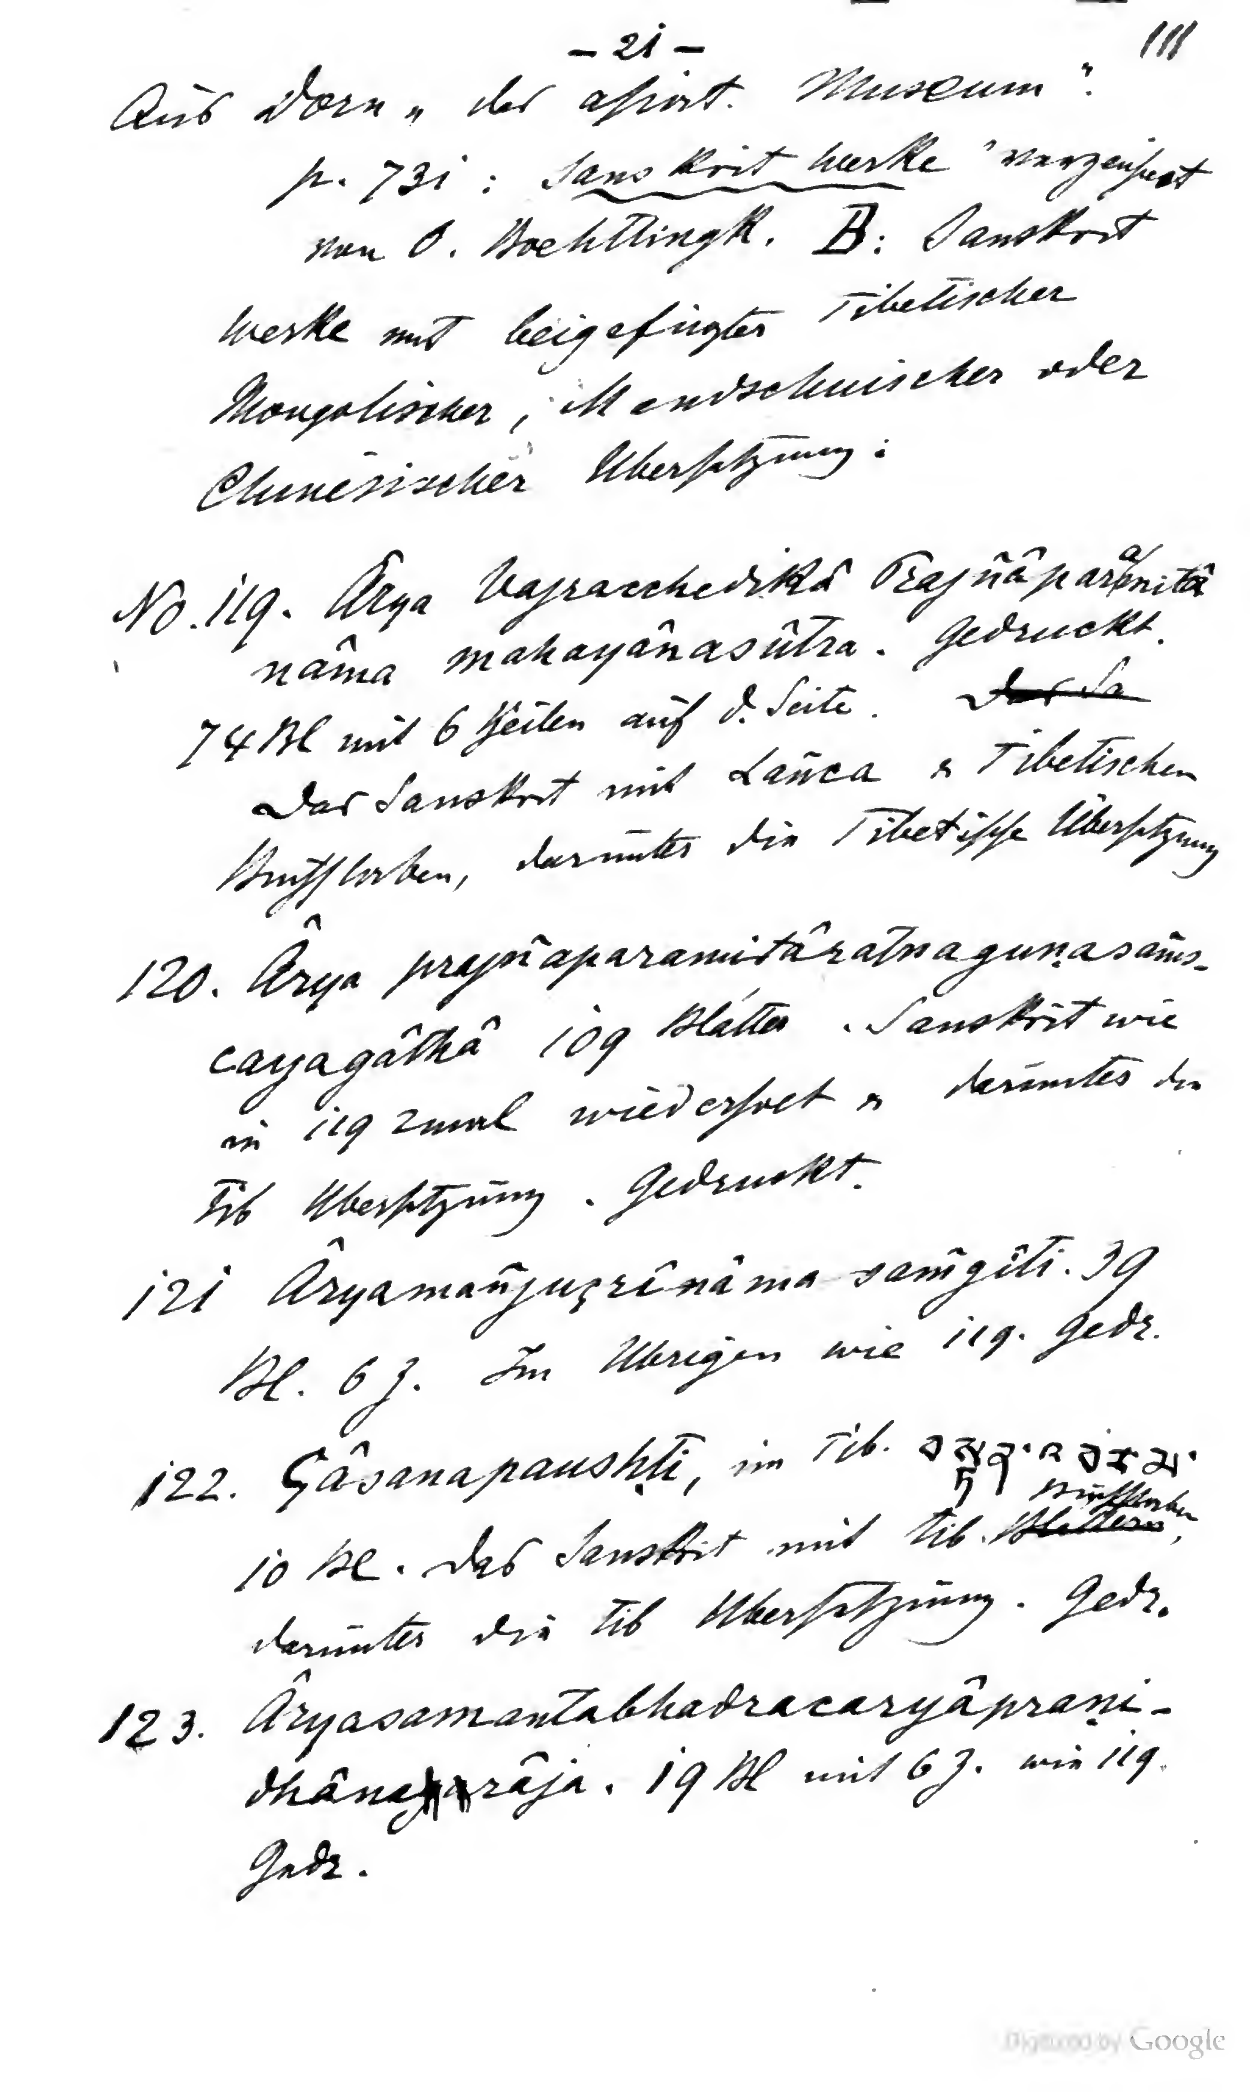 - 21 -
111
Aus Dorn „ das asiat. Museum".
p. 731 : Sanskrit Werke verzeichnet
von O. Boehtlingk. B: Sanskrit
Werke mit beigefügter Tibetischer
Mongolischer, Mandschuischer oder
Chinesischer Übersetzung:
No. 119. Ârya Vajracchedikâ Prajñâpâramitâ
nâma mahayânasûtra. Gedruckt.
74 Bl mit 6 Zeilen auf d. Seite. Das Sa
Das Sanskrit mit Lañca & Tibetischen
Buchstaben, darunter die Tibetische Übersetzung
120. Ârya prajñaparamitâratnaguṇasaṃs-
cayagâthâ 109 Blätter. Sanskrit wie
in 119 2mal wiederholt & darunter die
tib Übersetzung. Gedruckt.
121 Âryamañjuçrînâma saṃgîti. 39
Bl. 6 Z. Im Übrigen wie 119. Gedr.
122. Çâsanapaushṭi, im Tib.
Buchstaben
10 Bl. Das Sanskrit mit tib. Blättern,
darunter die tib Übersetzung. Gedr.
123. Âryasamantabhadracaryâpraṇi-
dhânarâja. 19 Bl mit 6 Z. wie 119.
Gedr.
Digitized by Google